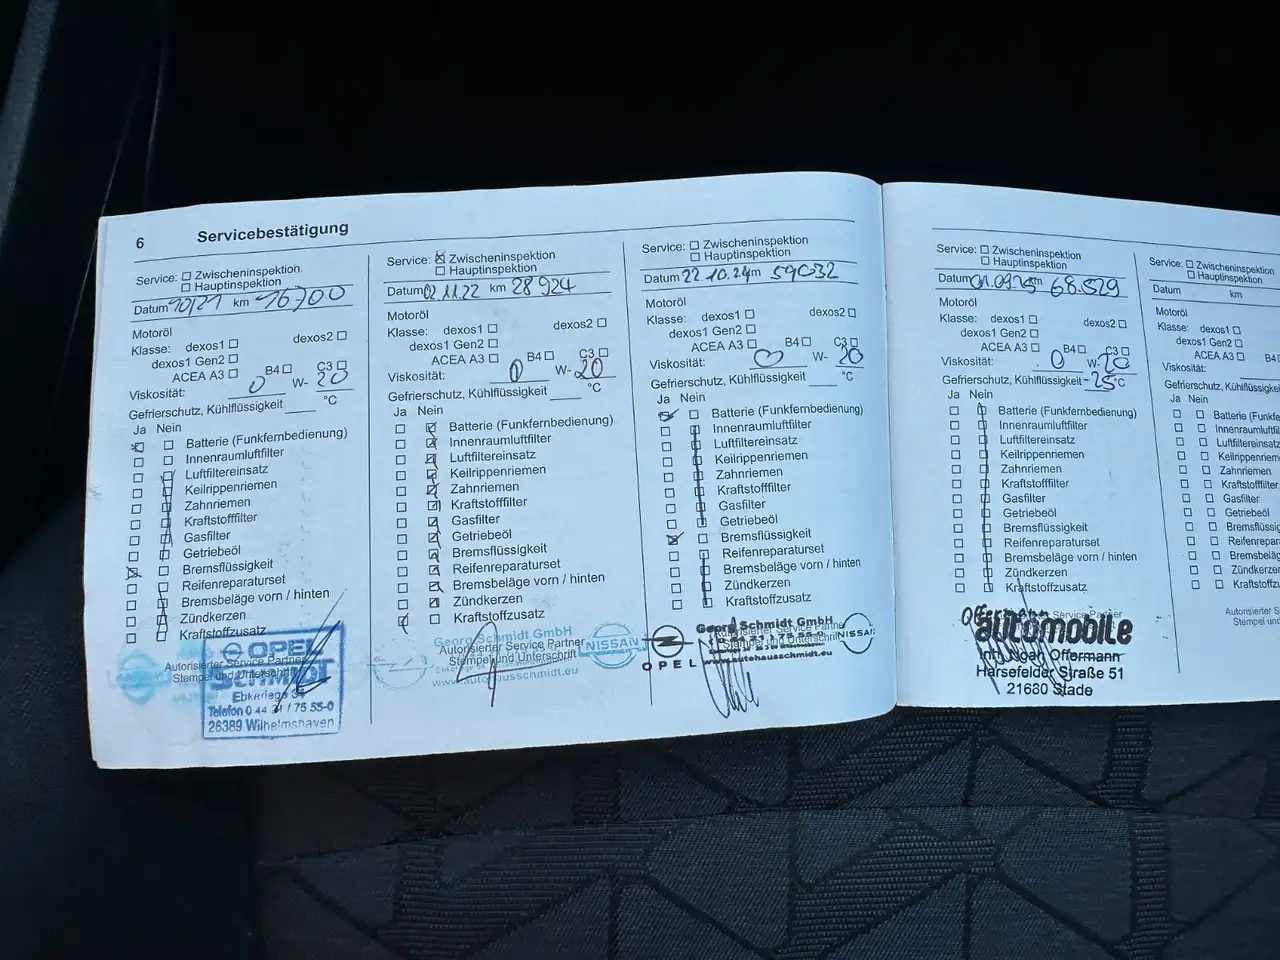 6 Servicebestätigung
Service: Zwischeninspektion
Hauptinspektion
Datum 10/21 km 16700
Motoröl
Klasse: dexos1 dexos2
dexos1 Gen2
ACEA A3 B4 C3
Viskosität: 0 W- 20
Gefrierschutz, Kühlflüssigkeit °C
Ja Nein
Batterie (Funkfernbedienung)
Innenraumluftfilter
Luftfiltereinsatz
Keilrippenriemen
Zahnriemen
Kraftstofffilter
Gasfilter
Getriebeöl
Bremsflüssigkeit
Reifenreparaturset
Bremsbeläge vorn / hinten
Zündkerzen
Kraftstoffzusatz
Autorisierter Service Partner
Stempel und Unterschrift
OPEL
SCHMIDT
Telefon 0 44 21 / 75 55-0
26389 Wilhelmshaven
Service: Zwischeninspektion
Hauptinspektion
Datum 02.11.22 km 28924
Motoröl
Klasse: dexos1 dexos2
dexos1 Gen2
ACEA A3 B4 C3
Viskosität: 0 W- 20
Gefrierschutz, Kühlflüssigkeit °C
Ja Nein
Batterie (Funkfernbedienung)
Innenraumluftfilter
Luftfiltereinsatz
Keilrippenriemen
Zahnriemen
Kraftstofffilter
Gasfilter
Getriebeöl
Bremsflüssigkeit
Reifenreparaturset
Bremsbeläge vorn / hinten
Zündkerzen
Kraftstoffzusatz
Georg Schmidt GmbH
Autorisierter Service Partner
Stempel und Unterschrift
www.autohausschmidt.eu
NISSAN
Service: Zwischeninspektion
Hauptinspektion
Datum 22.10.24 km 59032
Motoröl
Klasse: dexos1 dexos2
dexos1 Gen2
ACEA A3 B4 C3
Viskosität: 0 W- 20
Gefrierschutz, Kühlflüssigkeit °C
Ja Nein
Batterie (Funkfernbedienung)
Innenraumluftfilter
Luftfiltereinsatz
Keilrippenriemen
Zahnriemen
Kraftstofffilter
Gasfilter
Getriebeöl
Bremsflüssigkeit
Reifenreparaturset
Bremsbeläge vorn / hinten
Zündkerzen
Kraftstoffzusatz
OPEL
Georg Schmidt GmbH
Autorisierter Service Partner
Stempel und Unterschrift
www.autohausschmidt.eu
NISSAN
Service: Zwischeninspektion
Hauptinspektion
Datum 01.09.25 km 68.529
Motoröl
Klasse: dexos1 dexos2
dexos1 Gen2
ACEA A3 B4 C3
Viskosität: 0 W- 20
Gefrierschutz, Kühlflüssigkeit -25 °C
Ja Nein
Batterie (Funkfernbedienung)
Innenraumluftfilter
Luftfiltereinsatz
Keilrippenriemen
Zahnriemen
Kraftstofffilter
Gasfilter
Getriebeöl
Bremsflüssigkeit
Reifenreparaturset
Bremsbeläge vorn / hinten
Zündkerzen
Kraftstoffzusatz
Service Partner
Offermann
automobile
Inh. Noah Offermann
Harsefelder Straße 51
21680 Stade
Service: Zwischeninspektion
Hauptinspektion
Datum km
Motoröl
Klasse: dexos1
dexos1 Gen2
ACEA A3 B4
Viskosität:
Gefrierschutz, Kühlflüssigkeit
Ja Nein
Batterie (Funkfe
Innenraumluftfi
Luftfiltereinsatz
Keilrippenriem
Zahnriemen
Kraftstofffilter
Gasfilter
Getriebeöl
Bremsflüssig
Reifenrepara
Bremsbeläg
Zündkerzen
Kraftstoffzu
Autorisierter S
Stempel und